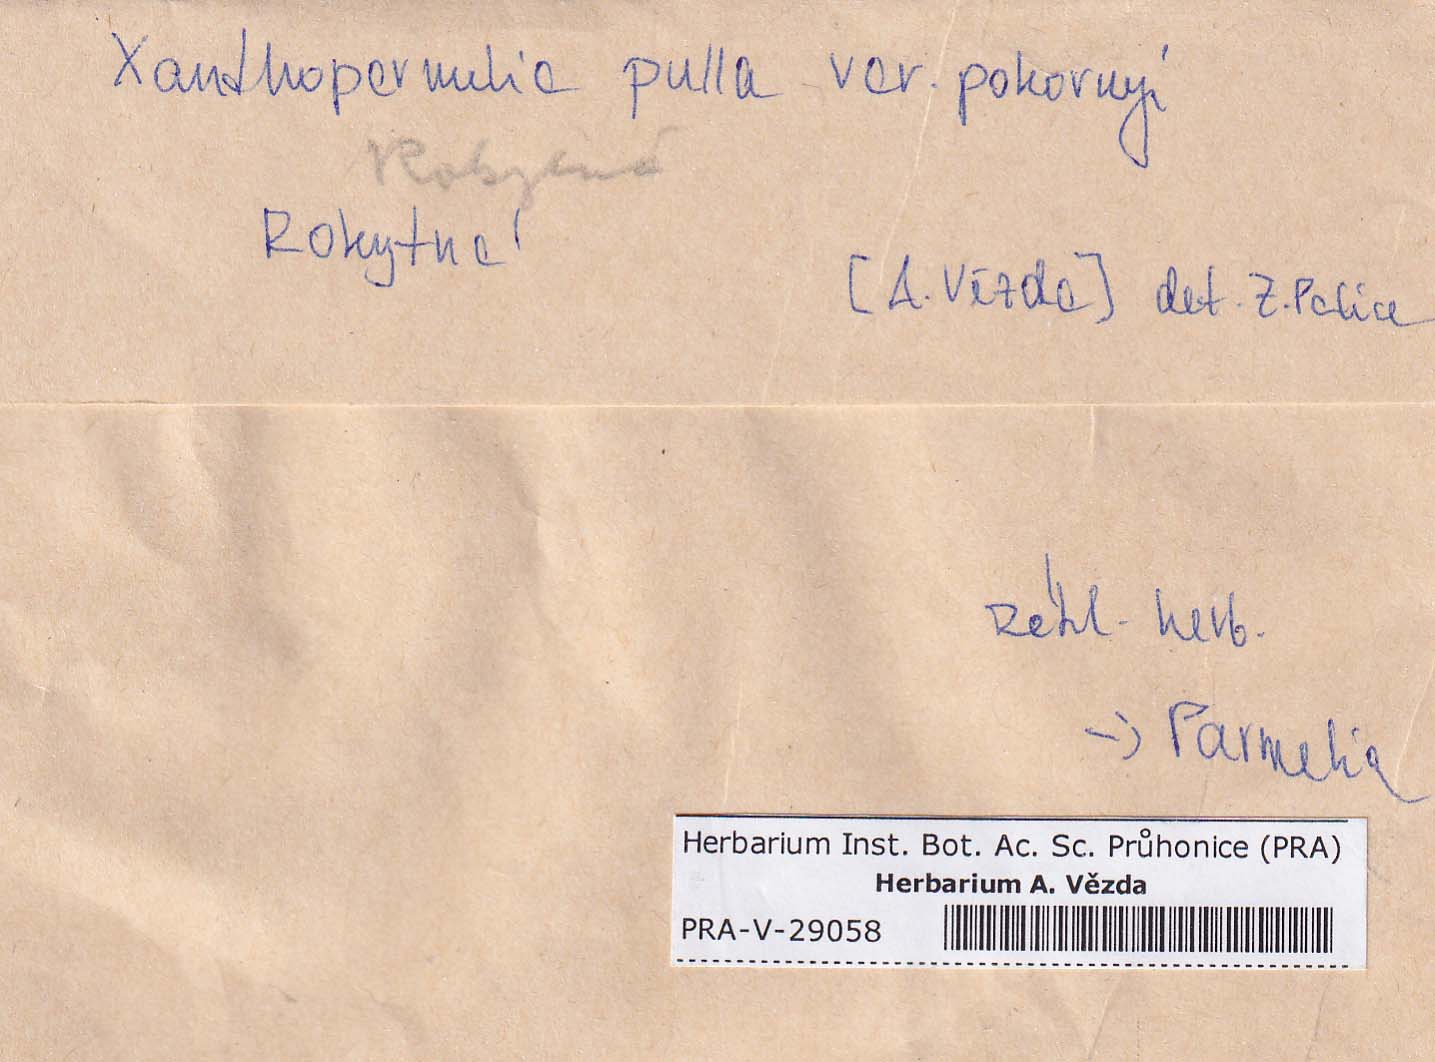 Xanthoparmelia pulla var. pokornyi
Rokytná
[A. Vězda] det. Z. Palice
herb.
-> Parmelia
Herbarium Inst. Bot. Ac. Sc. Průhonice (PRA)
Herbarium A. Vězda
PRA-V-29058